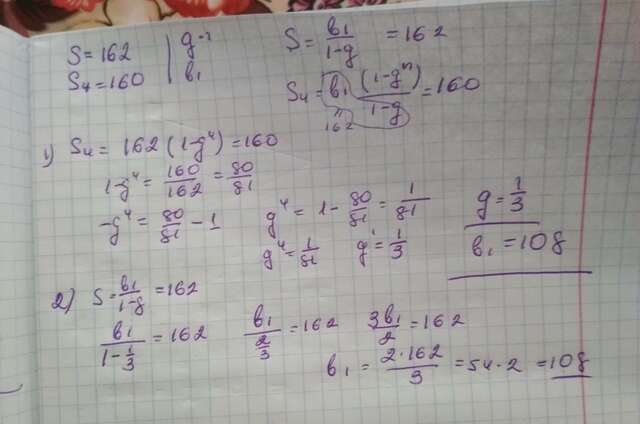 S = 162 | g - ?
S₄ = 160 | b₁
S = b₁/(1-g) = 162
S₄ = b₁ (1-gⁿ)/(1-g) = 160
162
1) S₄ = 162 (1-g⁴) = 160
1-g⁴ = 160/162 = 80/81
-g⁴ = 80/81 - 1
g⁴ = 1 - 80/81 = 1/81
g⁴ = 1/81 g = 1/3
g = 1/3
b₁ = 108
2) S = b₁/(1-g) = 162
b₁/(1-1/3) = 162 b₁/(2/3) = 162 3b₁/2 = 162
b₁ = 2·162/3 = 54·2 = 108